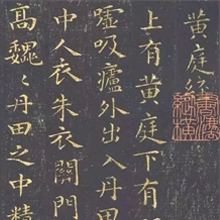 黄庭經
上有黄庭下有
嘘吸廬外出入丹
中人衣朱衣關門
高巍々丹田之中精